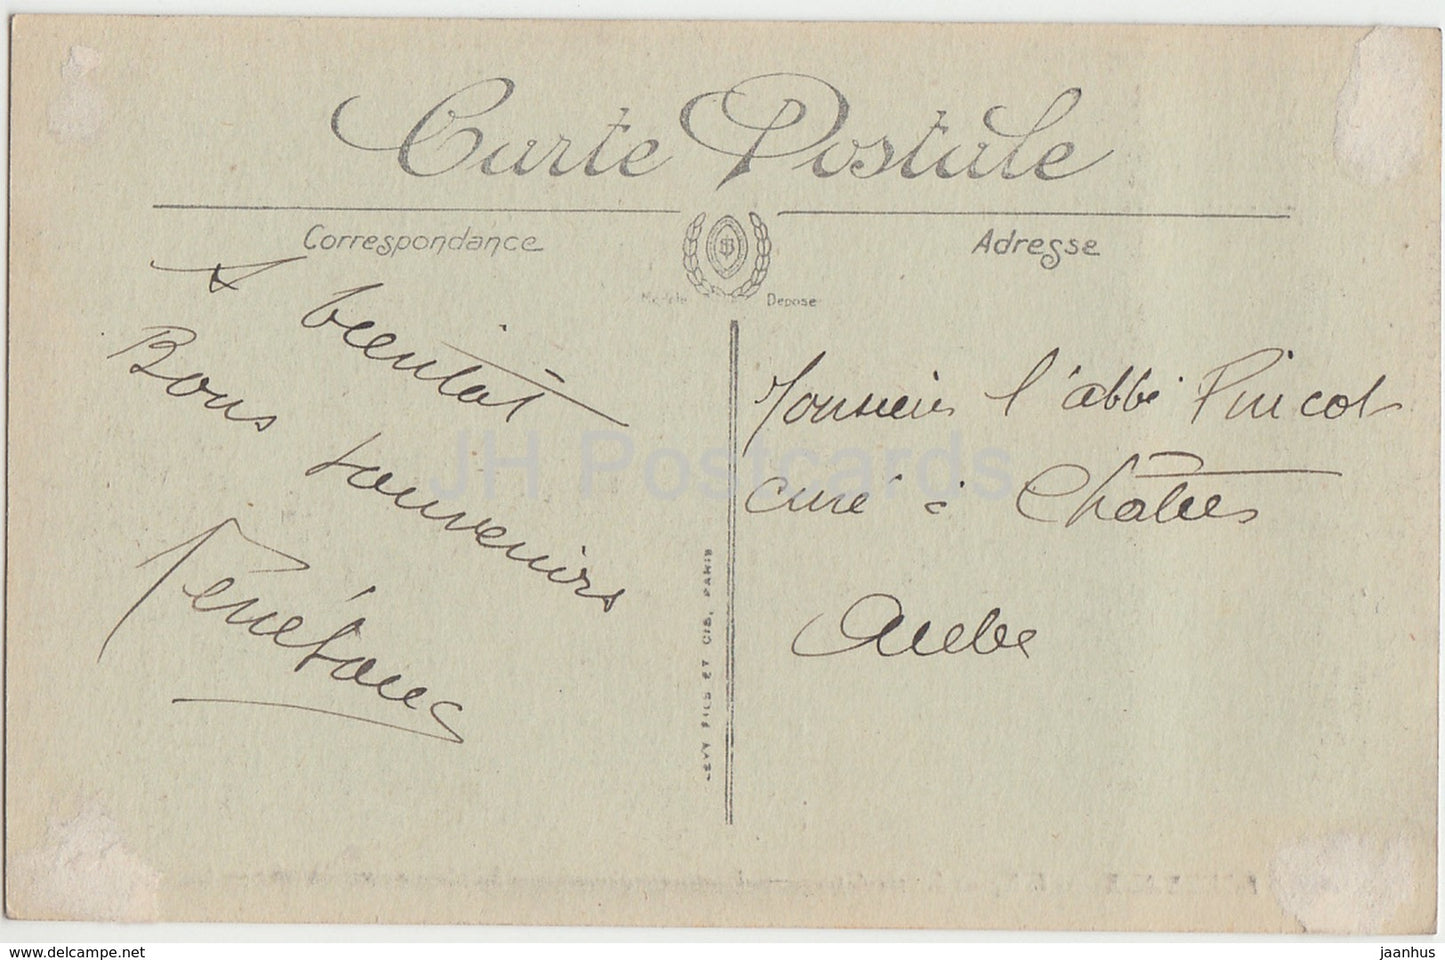 Carte Postale
Correspondance
Adresse
Modèle Deposé
A bientôt
Bons souvenirs
Monsieur l'abbé
curé à Châtres
Aube
LEVY FILS ET CIE, PARIS
JH Postcards
www.delcampe.net
jaanhus